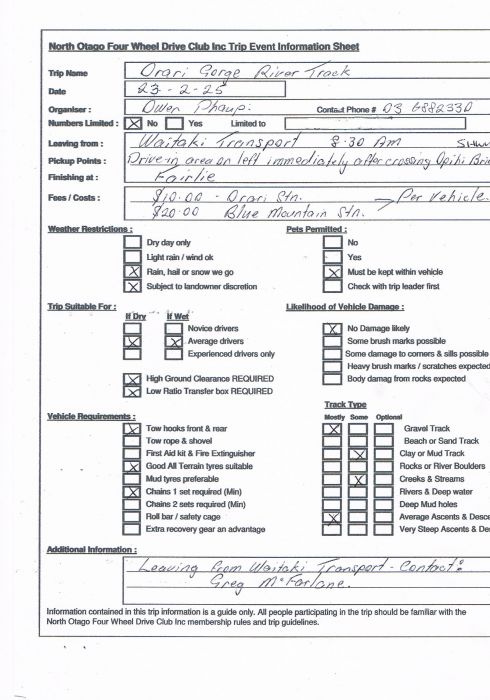 North Otago Four Wheel Drive Club Inc Trip Event Information Sheet
Trip Name Orari Gorge River Track
Date 23-2-25
Organiser : Owen Phaup: Contact Phone # 03 6882330
Numbers Limited : X No Yes Limited to
Leaving from : Waitaki Transport 8.30 Am
Pickup Points : Drive in area on left immediately after crossing Opihi Bri
Finishing at : Fairlie
Fees / Costs : $10.00 - Orari Stn. Per Vehicle.
$20.00 Blue Mountain Stn.
Weather Restrictions : Pets Permitted :
Dry day only No
Light rain / wind ok Yes
X Rain, hail or snow we go X Must be kept within vehicle
X Subject to landowner discretion Check with trip leader first
Trip Suitable For : Likelihood of Vehicle Damage :
If Dry If Wet
Novice drivers X No Damage likely
X X Average drivers Some brush marks possible
Experienced drivers only Some damage to corners & sills possible
Heavy brush marks / scratches expected
X High Ground Clearance REQUIRED Body damag from rocks expected
X Low Ratio Transfer box REQUIRED
Track Type
Vehicle Requirements : Mostly Some Optional
X Tow hooks front & rear X Gravel Track
Tow rope & shovel Beach or Sand Track
First Aid kit & Fire Extinguisher X Clay or Mud Track
X Good All Terrain tyres suitable Rocks or River Boulders
Mud tyres preferable X Creeks & Streams
X Chains 1 set required (Min) Rivers & Deep water
Chains 2 sets required (Min) Deep Mud holes
Roll bar / safety cage X Average Ascents & Desc
Extra recovery gear an advantage Very Steep Ascents & De
Additional Information :
Leaving from Waitaki Transport - Contact:
Greg McFarlane.
Information contained in this trip information is a guide only. All people participating in the trip should be familiar with the
North Otago Four Wheel Drive Club Inc membership rules and trip guidelines.